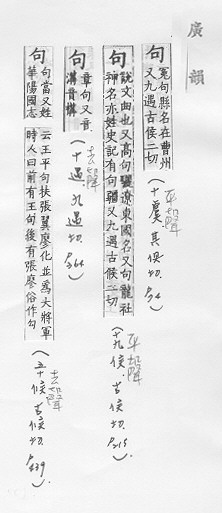 廣韻
句 冤句縣名在曹州又九遇古侯二切
平聲
(十虞 其俱切
句 說文曲也又高句驪遼東國名又句龍社神名亦姓史記有句彊又九遇古侯二切
平聲
(十九侯、古侯切. P.215)
句 章句又音溝音構
去聲
(十遇 九遇切. P.364)
句 句當又姓華陽國志云王平句扶張翼廖化並爲大將軍時人曰前有王句後有張廖俗作勾
去聲
(五十候 古候切. P.439)